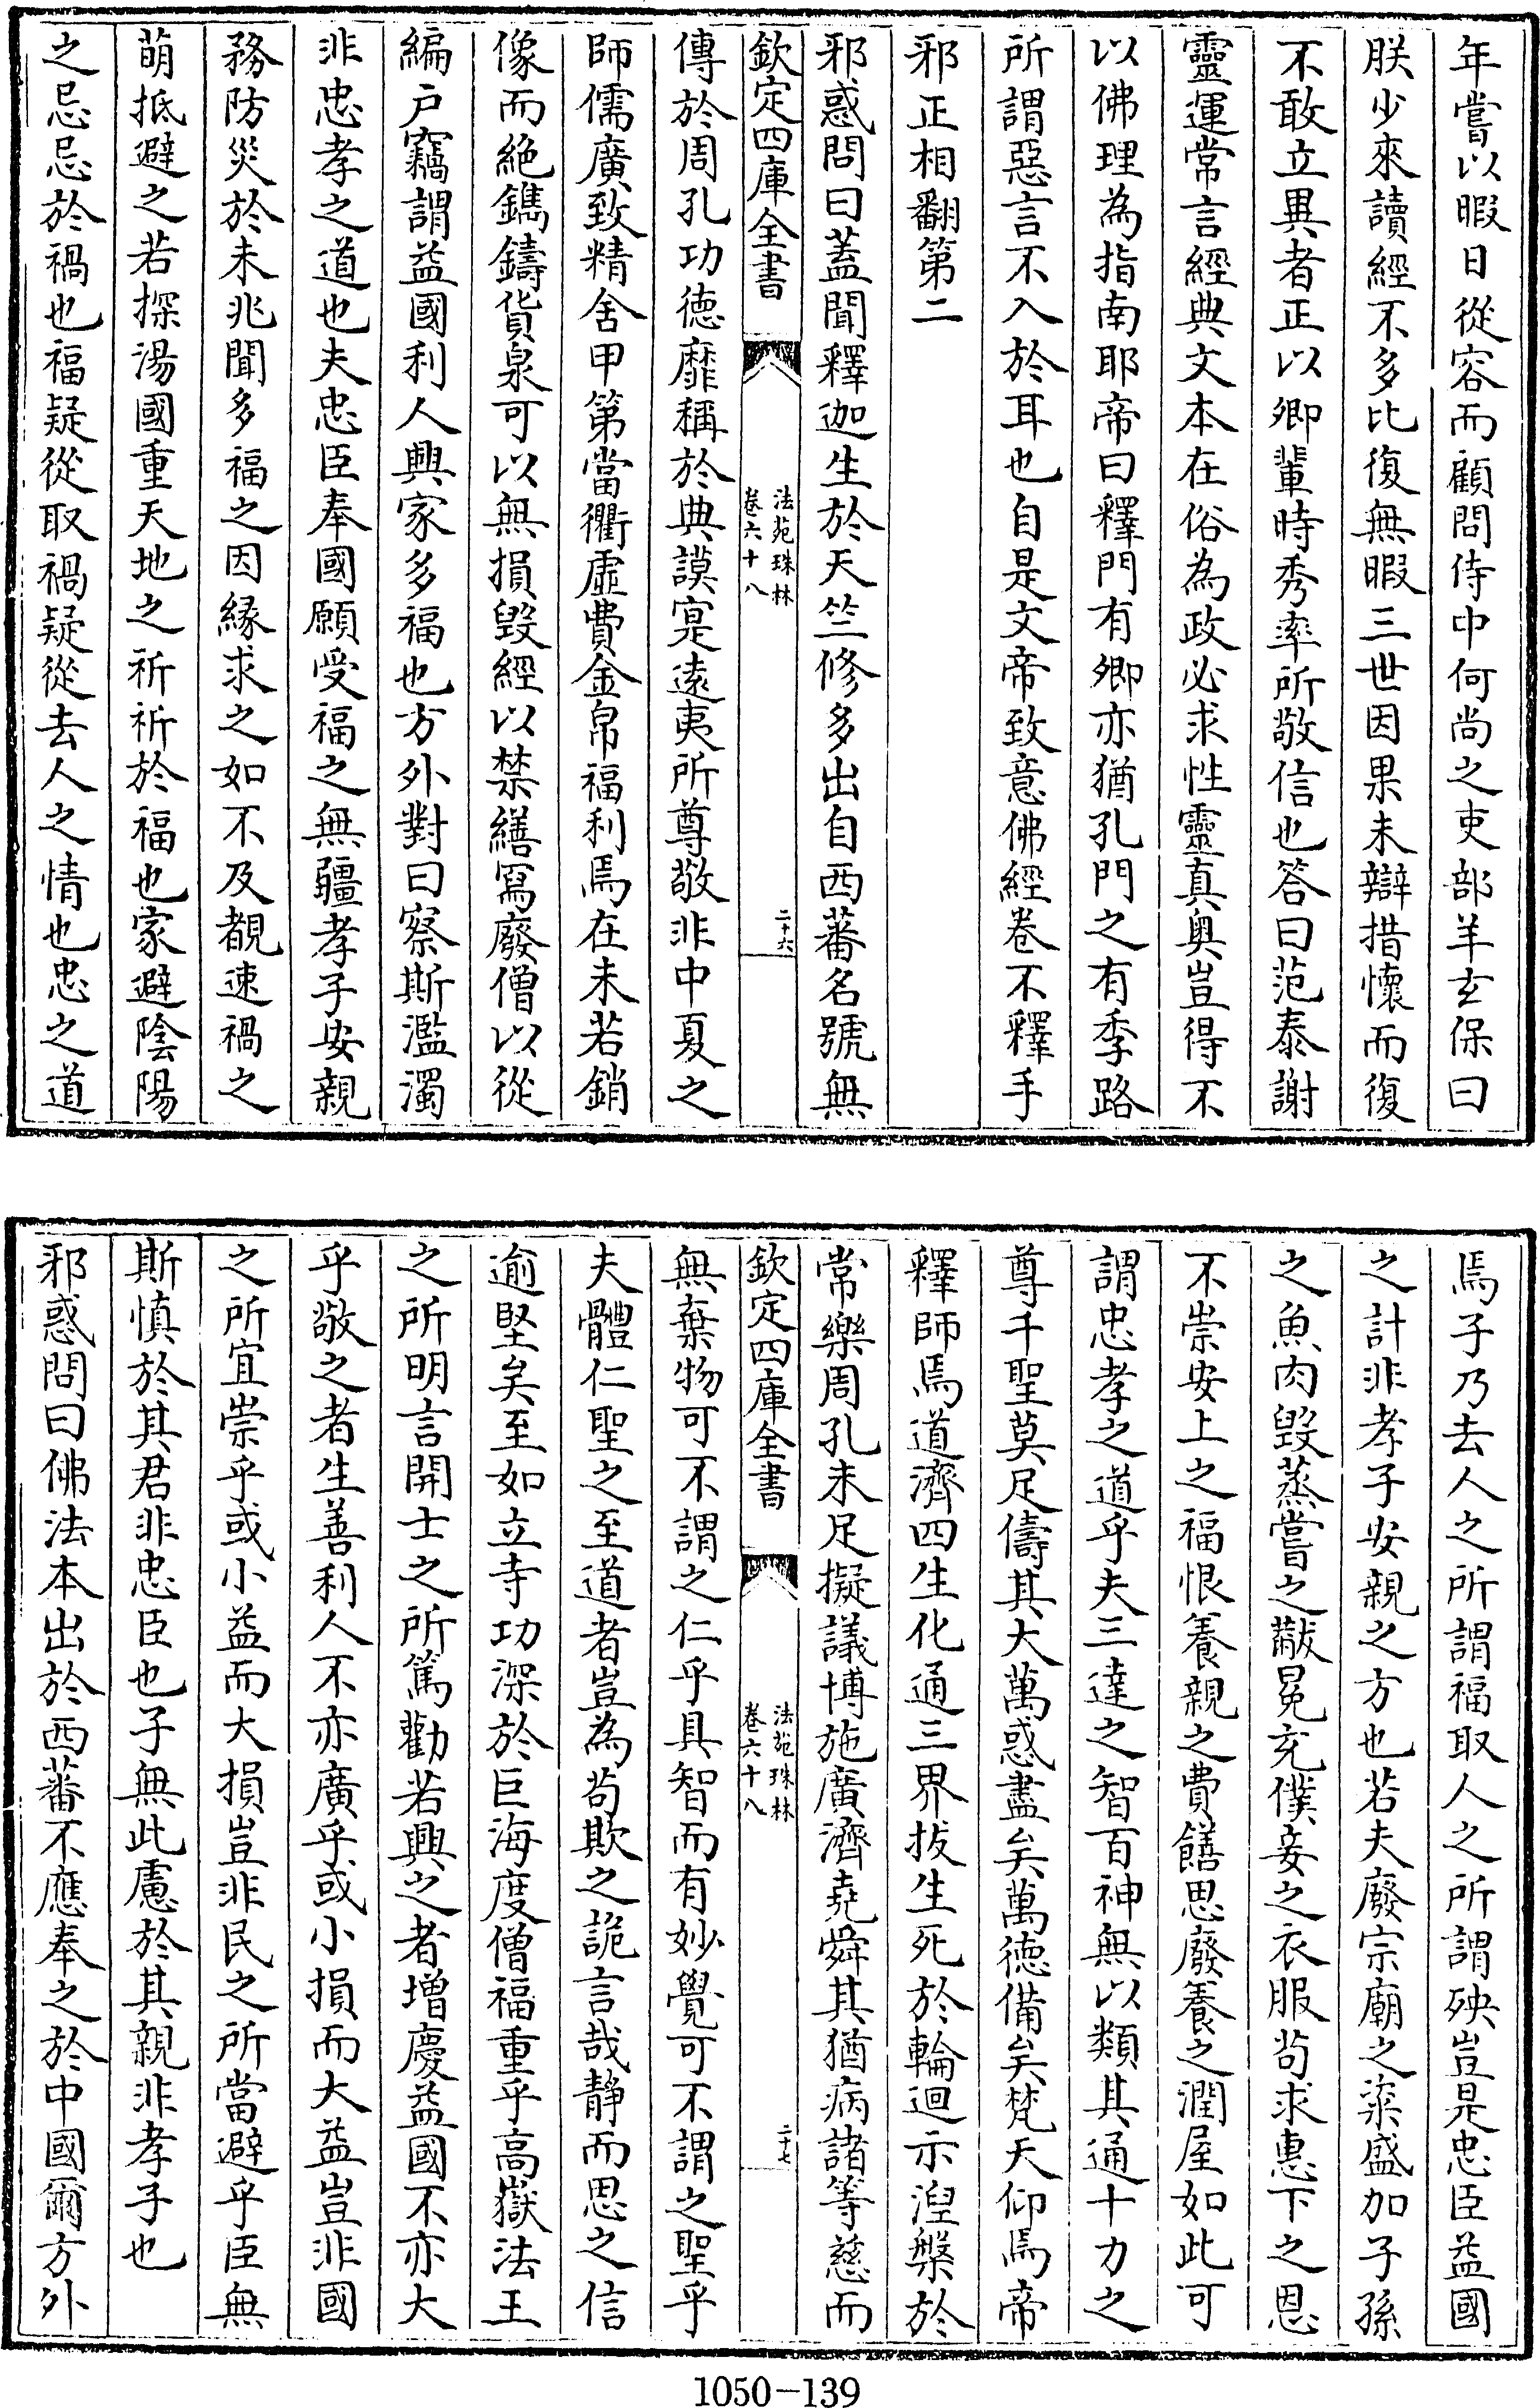 年嘗以暇日從容而顧問侍中何尚之吏部羊玄保曰
朕少來讀經不多比復無暇三世因果未辯措懷而復
不敢立異者正以卿輩時秀率所敬信也答曰范泰謝
靈運常言經典文本在俗為政必求性靈真奥豈得不
以佛理為指南耶帝曰釋門有卿亦猶孔門之有季路
所謂惡言不入於耳也自是文帝致意佛經卷不釋手
邪正相翻第二
邪惑問曰蓋聞釋迦生於天竺修多出自西蕃名號無
欽定四庫全書
法苑珠林
卷六十八
二十六
傳於周孔功德靡稱於典謨寔遠夷所尊敬非中夏之
師儒廣致精舍甲第當衢虛費金帛福利焉在未若銷
像而絶鐫鑄貨泉可以無損毀經以禁繕寫廢僧以從
編户竊謂益國利人興家多福也方外對曰察斯濫濁
非忠孝之道也夫忠臣奉國願受福之無疆孝子安親
務防災於未兆聞多福之因緣求之如不及覩速禍之
萌抵避之若探湯國重天地之祈祈於福也家避陰陽
之忌忌於禍也福疑從取禍疑從去人之情也忠之道
焉子乃去人之所謂福取人之所謂殃豈是忠臣益國
之計非孝子安親之方也若夫廢宗廟之粢盛加子孫
之魚肉毀蒸嘗之黻冕充僕妾之衣服苟求惠下之恩
不崇安上之福恨養親之費饍思廢養之潤屋如此可
謂忠孝之道乎夫三達之智百神無以類其通十力之
尊千聖莫足儔其大萬惑盡矣萬徳備矣梵天仰焉帝
釋師焉道濟四生化通三界拔生死於輪迴示湼槃於
常樂周孔未足擬議博施廣濟堯舜其猶病諸等慈而
欽定四庫全書
法苑珠林
卷六十八
二十七
無棄物可不謂之仁乎具智而有妙覺可不謂之聖乎
夫體仁聖之至道者豈為苟欺之詭言哉静而思之信
逾堅矣至如立寺功深於巨海度僧福重乎高嶽法王
之所明言開士之所篤勸若興之者增慶益國不亦大
乎敬之者生善利人不亦廣乎或小損而大益豈非國
之所宜崇乎或小益而大損豈非民之所當避乎臣無
斯慎於其君非忠臣也子無此慮於其親非孝子也
邪惑問曰佛法本出於西蕃不應奉之於中國爾方外
1050-139